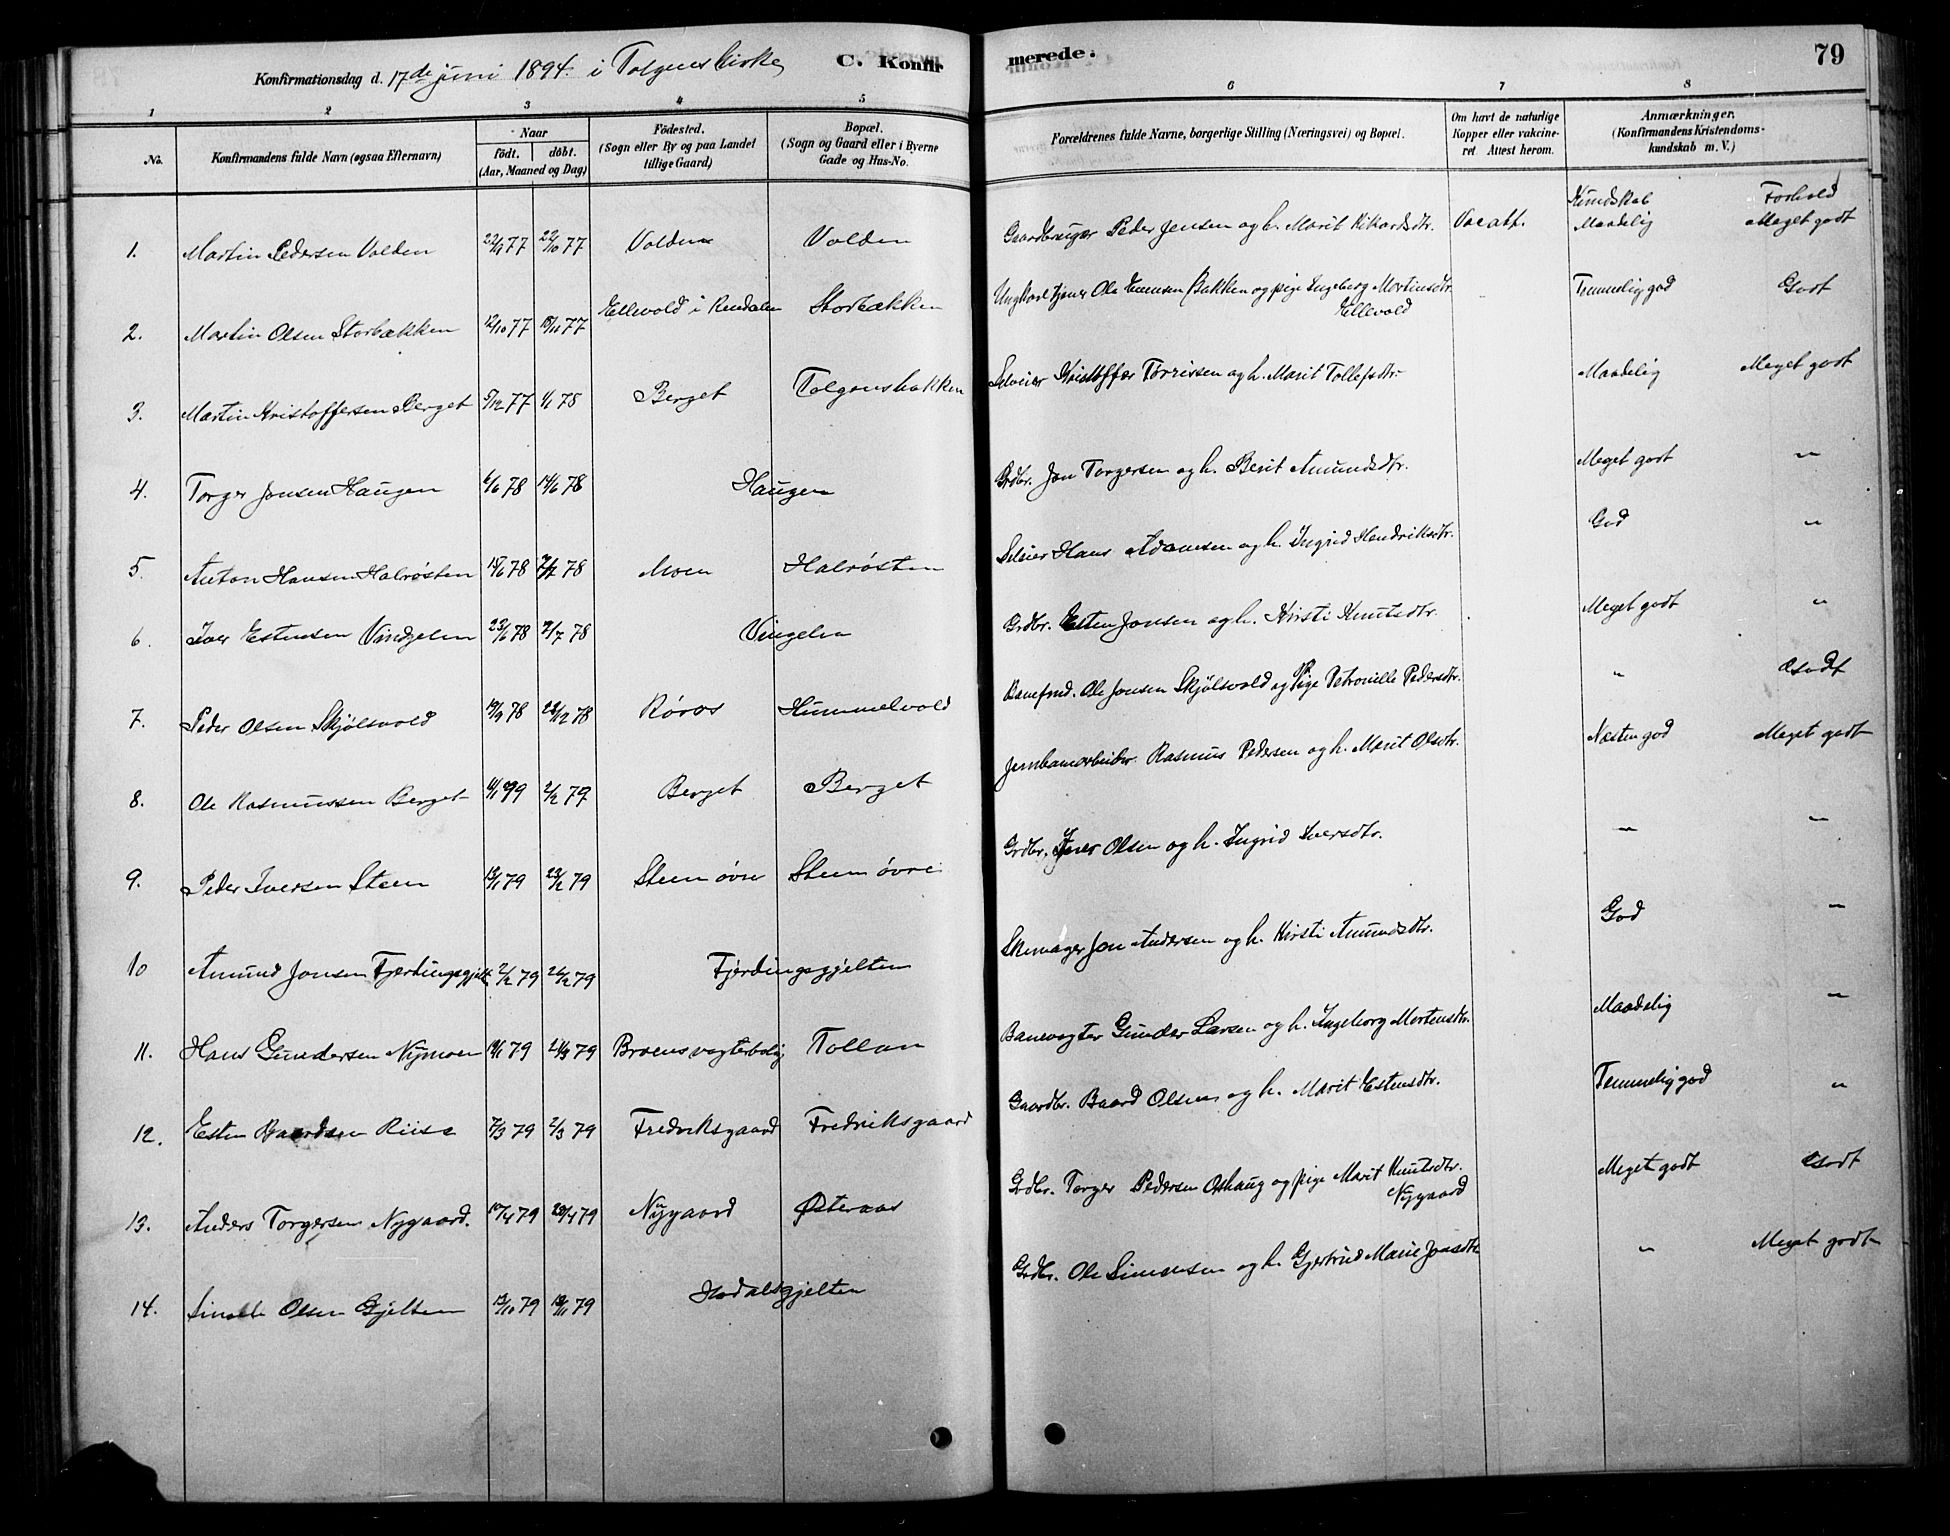 Konfirmationsdag d. 17de juni 1894. i Tolgens kirke C. Konfirmerede. 79
1 2 3 4 5 6 7 8
No. Konfirmandens fulde Navn (ogsaa Efternavn) Naar født. døbt. (Aar, Maaned og Dag) Fødested. (Sogn eller By og paa Landet tillige Gaard) Bopæl. (Sogn og Gaard eller i Byerne Gade og Hus-No. Forældrenes fulde Navne, borgerlige Stilling (Næringsvei) og Bopæl. Om havt de naturlige Kopper eller vakcineret Attest herom. Anmærkninger. (Konfirmandens Kristendomskundskab m. V.)
Kundskab Forhold
1. Martin Pedersen Volden 22/9 77 22/10 77 Volden Volden Gaardbruger Peder Jensen og h. Marit Rikardsdtr. Vacatt. Maadelig Meget godt
2. Martin Olsen Storbækken 12/10 77 Ellevold i Rendalen Storbækken Ungkarl tjener Ole Evensen Bakken og pige Ingeborg Mortensdtr. Ellevold Temmelig god Godt
3. Martin Kristoffersen Berget 5/12 77 1/1 78 Berget Tolgensbakken Selveier Kristoffer Tørrissen og h. Marit Tollefsdtr. Maadelig Meget godt
4. Torger Jonsen Haugen 6/6 78 14/6 78 Haugen Grdbr. Jon Torgersen og h. Berit Amundsdtr. Meget godt "
5. Anton Hansen Halrøsten 15/6 78 7/7 78 Moen Halrøsten Selvier Hans Adamsen og h. Ingrid Hendriksdtr. God "
6. Iver Estensen Vindgelen 23/6 78 2/7 78 Vingelen Grdbr. Esten Jonsen og h. Kirsti Knutsdtr. Meget godt "
7. Peder Olsen Skjølsvold 19/9 78 28/12 78 Røros Hummelvold Banefmd. Ole Jonsen Skjølsvold og Pige Petronille Pedersdtr. " Godt
8. Ole Rasmussen Berget 2/2 79 Berget Berget Jernbanearbeider Rasmus Pedersen og h. Marit Olsdtr. Næsten god Meget godt
9. Peder Iversen Steen 13/1 79 23/2 79 Steen øvre Steen øvre Grdbr. Iver Olsen og h. Ingrid Iversdtr. " "
10 Amund Jonsen Fjerdingsgjelt. 2/2 79 Fjerdingsgjelten Skomager Jon Andersen og h. Kirsti Amundsdtr. God "
11. Hans Gundersen Nymoen Broens vogterbolig Tollan Banevogter Gunder Larsen og h. Ingeborg Mortensdtr. Maadelig "
12. Esten Baardsen Riise 7/3 79 Fredriksgaard Fredriksgaard Gaardbr. Baard Olsen og h. Marit Estensdtr. Temmelig god "
13. Anders Torgersen Nygaard. 17/4 79 20/4 79 Nygaard Østeraas Grdbr. Torger Pedersen Oshaug og pige Marit Knutsdtr. Nygaard Meget godt Godt
14. Olsen Gjelten 13/10 79 Hodalsgjelten Grdbr. Ole Simensen og h. Gjertrud Marie Jonsdtr " Meget godt